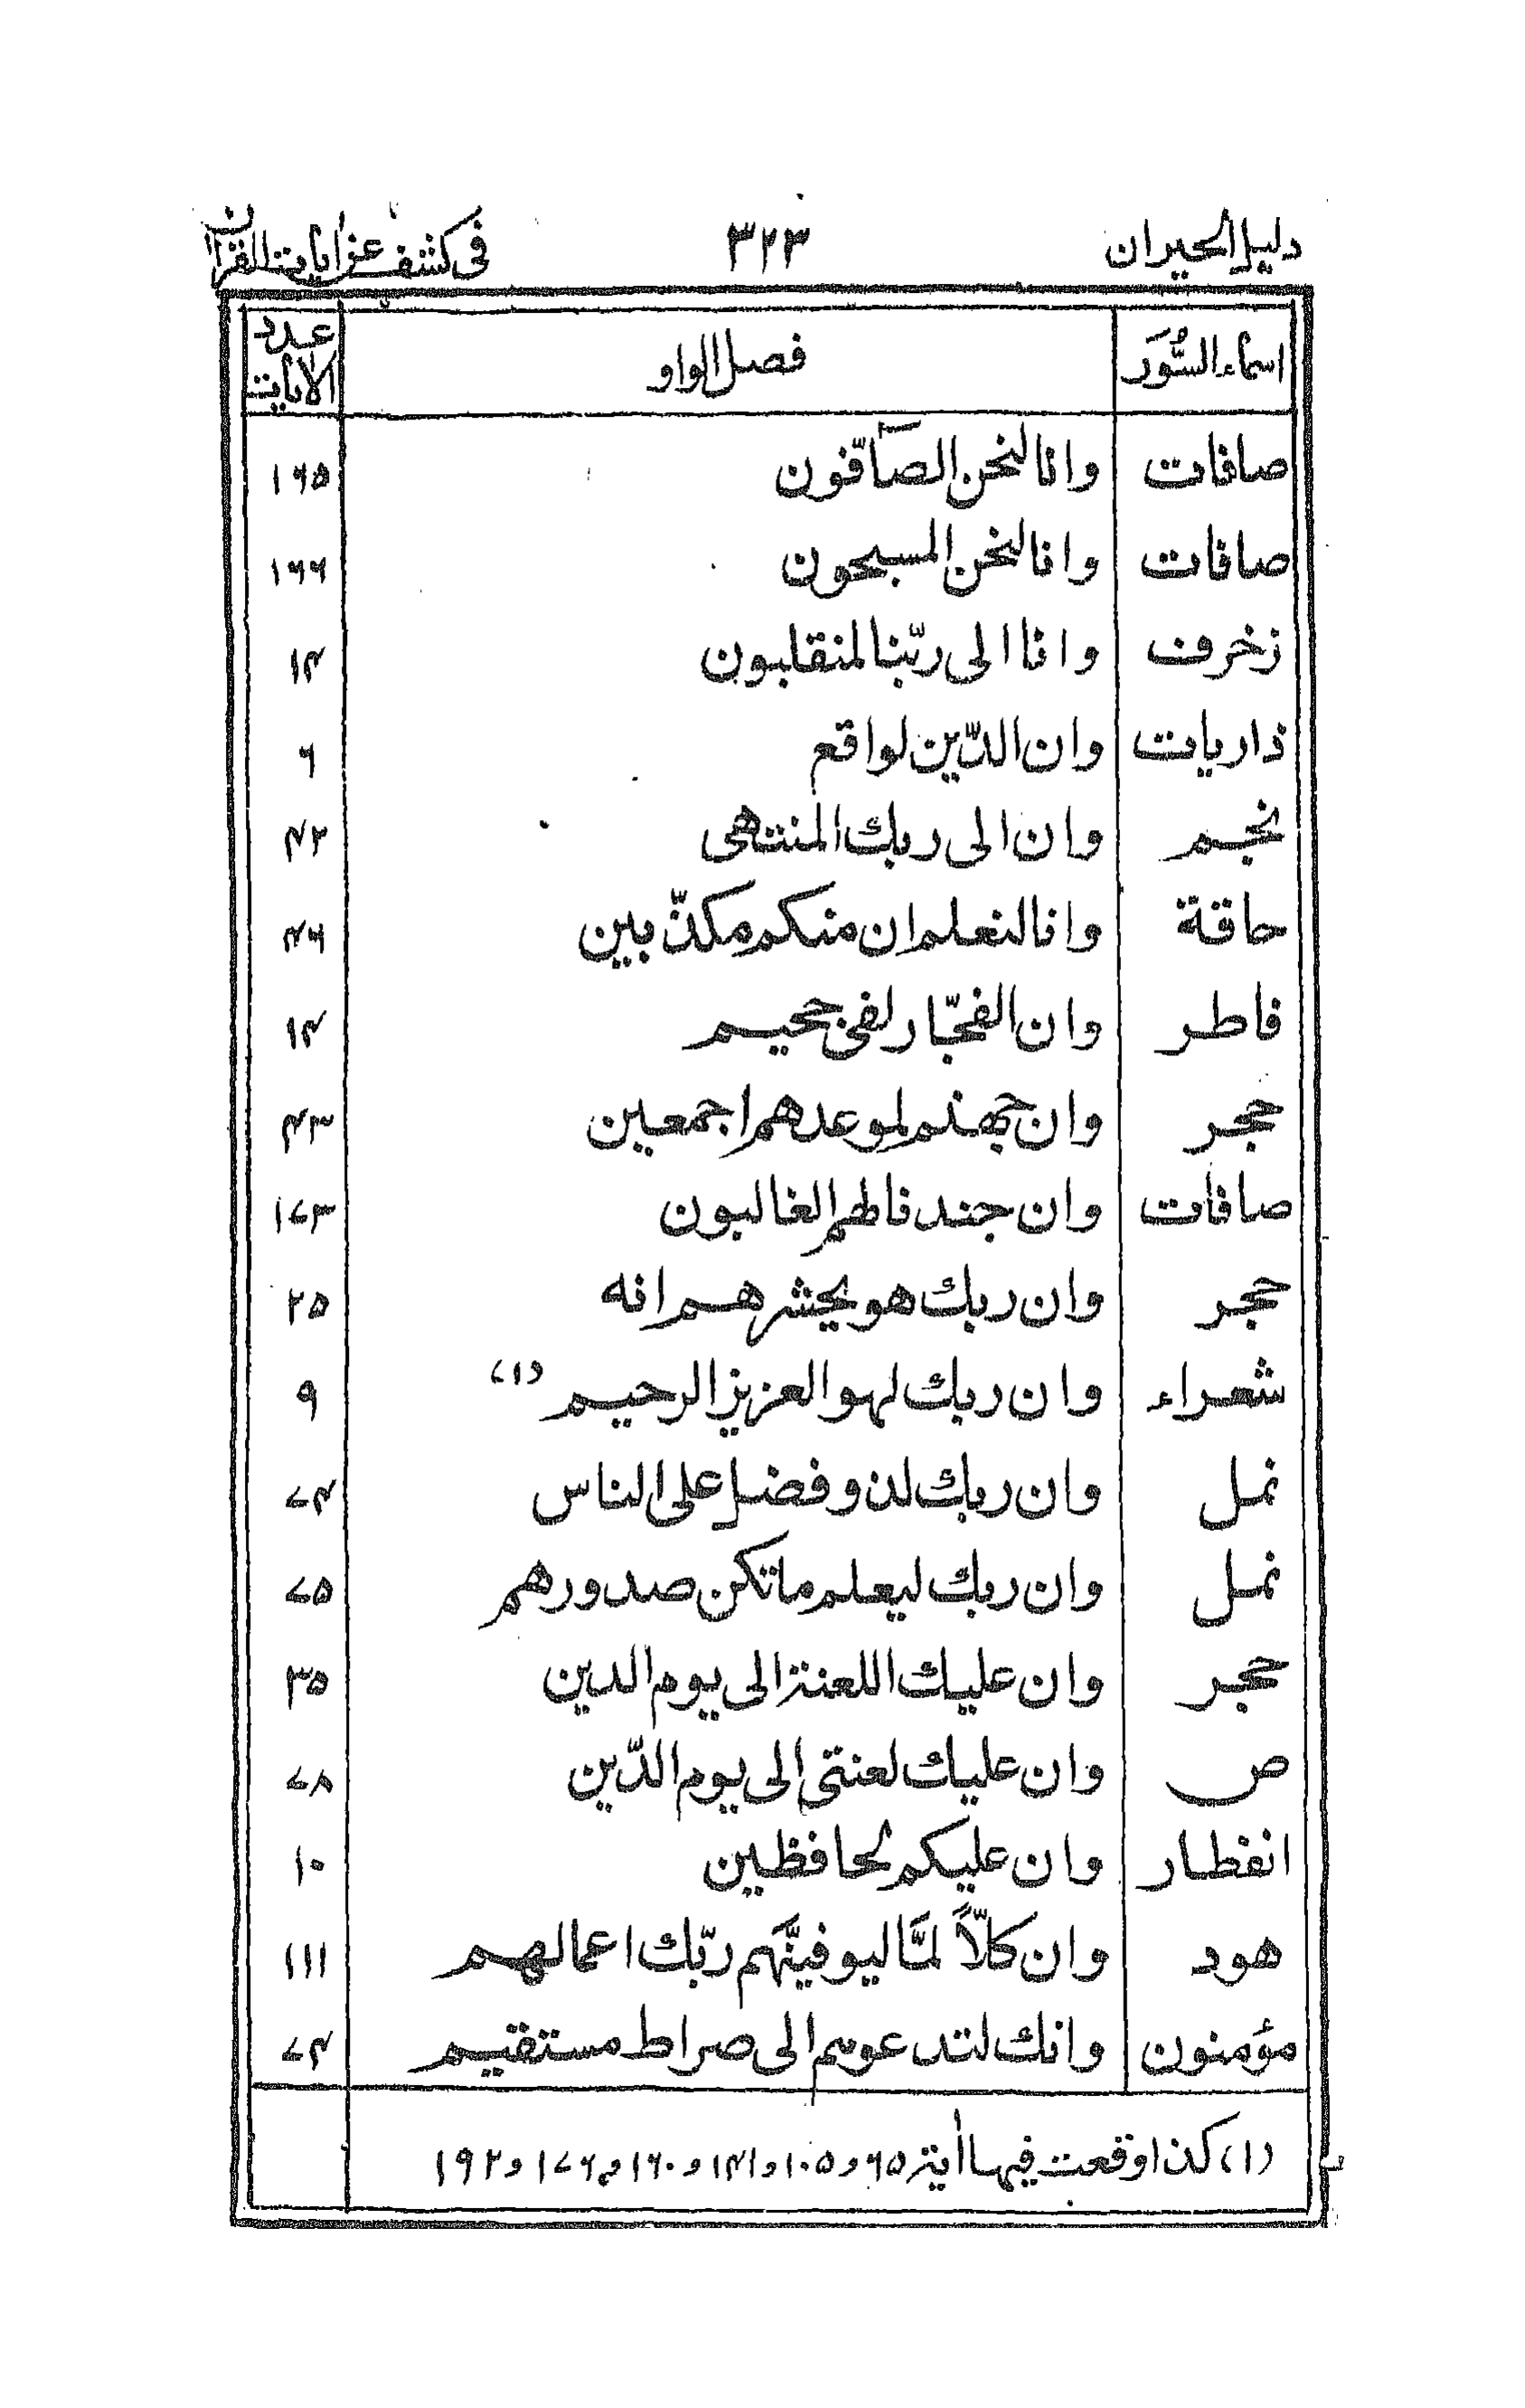 دليل الحيران ۳۲۳ فى كشف عن اٰيات القراٰن
اسماء السُّوَر فصل الواو عدد الاٰيات
صافات وانا لنحن الصَّآفّون ۱۶۵
صافات وانا لنحن المسبحون ۱۶۶
زخرف وانا الى ربّنا لمنقلبون ۱۴
ذاريات وان الدّين لواقع ۶
نجم وان الى ربك المنتهى ۴۲
حاقة وانا لنعلم ان منكم مكذّبين ۴۶
فاطر وان الفجّار لفى جحيم ۱۴
حجر وان جهنم لموعدهم اجمعين ۴۳
صافات وان جندنا لهم الغالبون ۱۷۳
حجر وان ربك هو يحشرهم انه ۲۵
شعراء وان ربك لهو العزيز الرحيم (۱) ۹
نمل وان ربك لذو فضل على الناس ۷۴
نمل وان ربك ليعلم ما تكن صدورهم ۷۵
حجر وان عليك اللعنة الى يوم الدين ۳۵
ص وان عليك لعنتى الى يوم الدّين ۷۸
انفطار وان عليكم لحافظين ۱۰
هود وان كلّاً لمَّا ليوفينَّهم ربّك اعمالهم ۱۱۱
مؤمنون وانك لتدعوهم الى صراط مستقيم ۷۴
(۱) كذا وقعت فيها اٰية ۶۵ و ۱۰۵ و ۱۴۱ و ۱۶۰ و ۱۷۶ و ۱۹۲